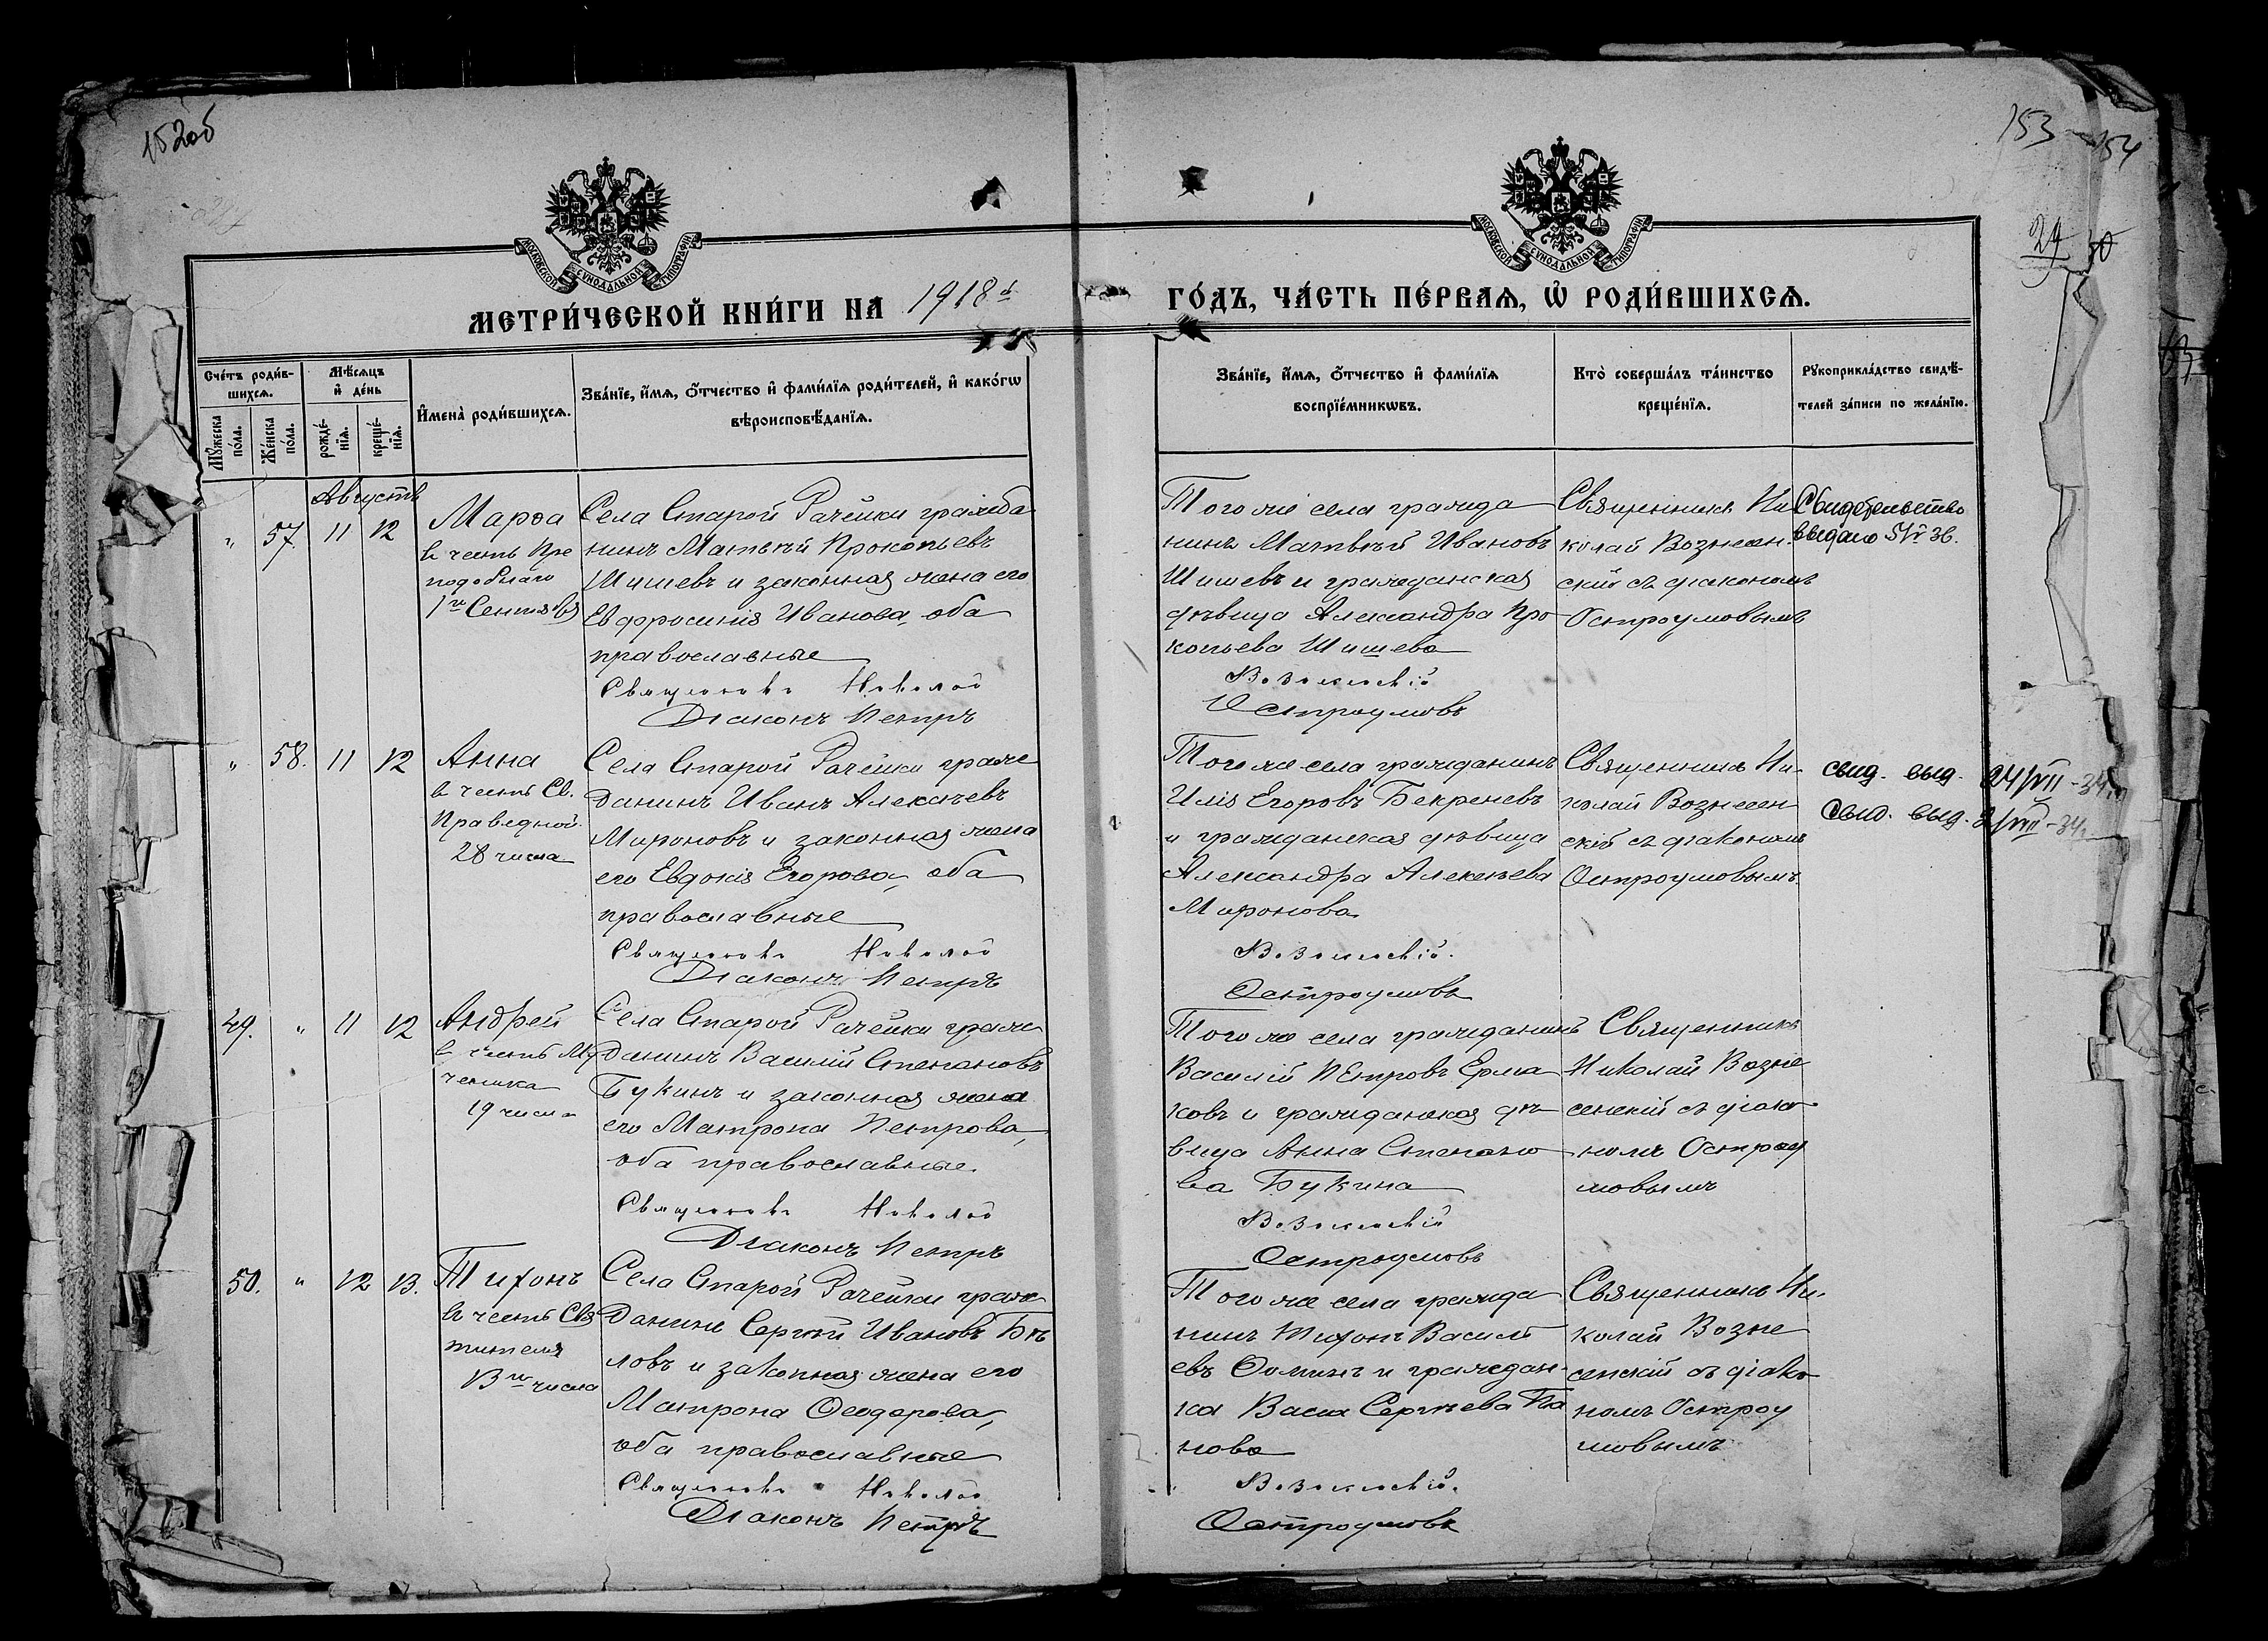 152об
153
154
29
30
МОСКОВСКОЙ СѴНОДАЛЬНОЙ ТИПОГРАФІИ
МОСКОВСКОЙ СѴНОДАЛЬНОЙ ТИПОГРАФІИ
МЕТРИ́ЧЕСКОЙ КНИ́ГИ НА 1918й
ГО́ДЪ, ЧА́СТЬ ПЕ́РВАѦ, Ѡ҆ РОДИ́ВШИХСѦ.
Сче́тъ роди́в-
шихсѧ.
Мꙋ́жеска по́ла.
Же́нска по́ла.
Мѣ́сѧцъ и҆ де́нь
рожде́-нїѧ.
креще́-нїѧ.
И҆мена̀ роди́вшихсѧ.
Зва́нїе, и҆́мѧ, ѻ҆́тчество и҆ фами́лїѧ роди́телей, и҆ како́гѡ
вѣроисповѣ́данїѧ.
Зва́нїе, и҆́мѧ, ѻ҆́тчество и҆ фами́лїѧ
воспрїе́мникѡвъ.
Кто̀ соверша́лъ та́инство
креще́нїѧ.
Рꙋкоприкла́дство свидѣ́-
телей за́писи по жела́нїю.
Августъ
" 57. 11 12
Марѳа
въ честь Пре
подобнаго
1го Сентября
Села Старой Рачейки гражда
нинъ Матвѣй Прокопьевъ
Шишевъ и законная жена его
Евфросинія Иванова, оба
православные
Священникъ Николай
Діаконъ Петръ
Того же села гражда
нинъ Матвѣй Ивановъ
Шишевъ и гражданская
дѣвица Александра Про
копьева Шишева
Вознесенскій
Остроумовъ
Священникъ Ни
колай Вознесен-
скій съ діакономъ
Остроумовымъ
Свидетельство
выдано
" 58. 11 12
Анна
въ честь Св.
Праведной
28 числа
Села Старой Рачейки граж
данинъ Иванъ Алексѣевъ
Мироновъ и законная жена
его Евдокія Егорова, оба
православные
Священникъ Николай
Діаконъ Петръ
Того же села гражданинъ
Илія Егоровъ Бекреневъ
и гражданская дѣвица
Александра Алексѣева
Миронова
Вознесенскій.
Остроумовъ
Священникъ Ни-
колай Вознесен
скій съ діакономъ
Остроумовымъ
свид. выд. 24/VII-34.
Свид. выд. 2/VIII-34.
49. " 11 12
Андрей
въ честь Му
ченика
19 числа
Села Старой Рачейки граж
данинъ Василій Степановъ
Букинъ и законная жена
его Матрона Петрова,
оба православные.
Священникъ Николай
Діаконъ Петръ
Того же села гражданинъ
Василій Петровъ Ерма
ковъ и гражданская дѣ
вица Анна Степано
ва Букина
Вознесенскій
Остроумовъ
Священникъ
Николай Возне
сенскій съ діако
номъ Остроу
мовымъ
50. " 12 13.
Тихонъ
въ честь Свя
тителя
13го числа
Села Старой Рачейки граж
данинъ Сергѣй Ивановъ Бѣ
ловъ и законная жена его
Матрона Ѳеодорова,
оба православные
Священникъ Николай
Діаконъ Петръ
Того же села гражда
нинъ Тихонъ Василі
евъ Ѳоминъ и граждан-
ка Васса Сергѣева Па
нова
Вознесенскій.
Остроумовъ
Священникъ Ни-
колай Возне
сенскій съ діако
номъ Остроу
мовымъ